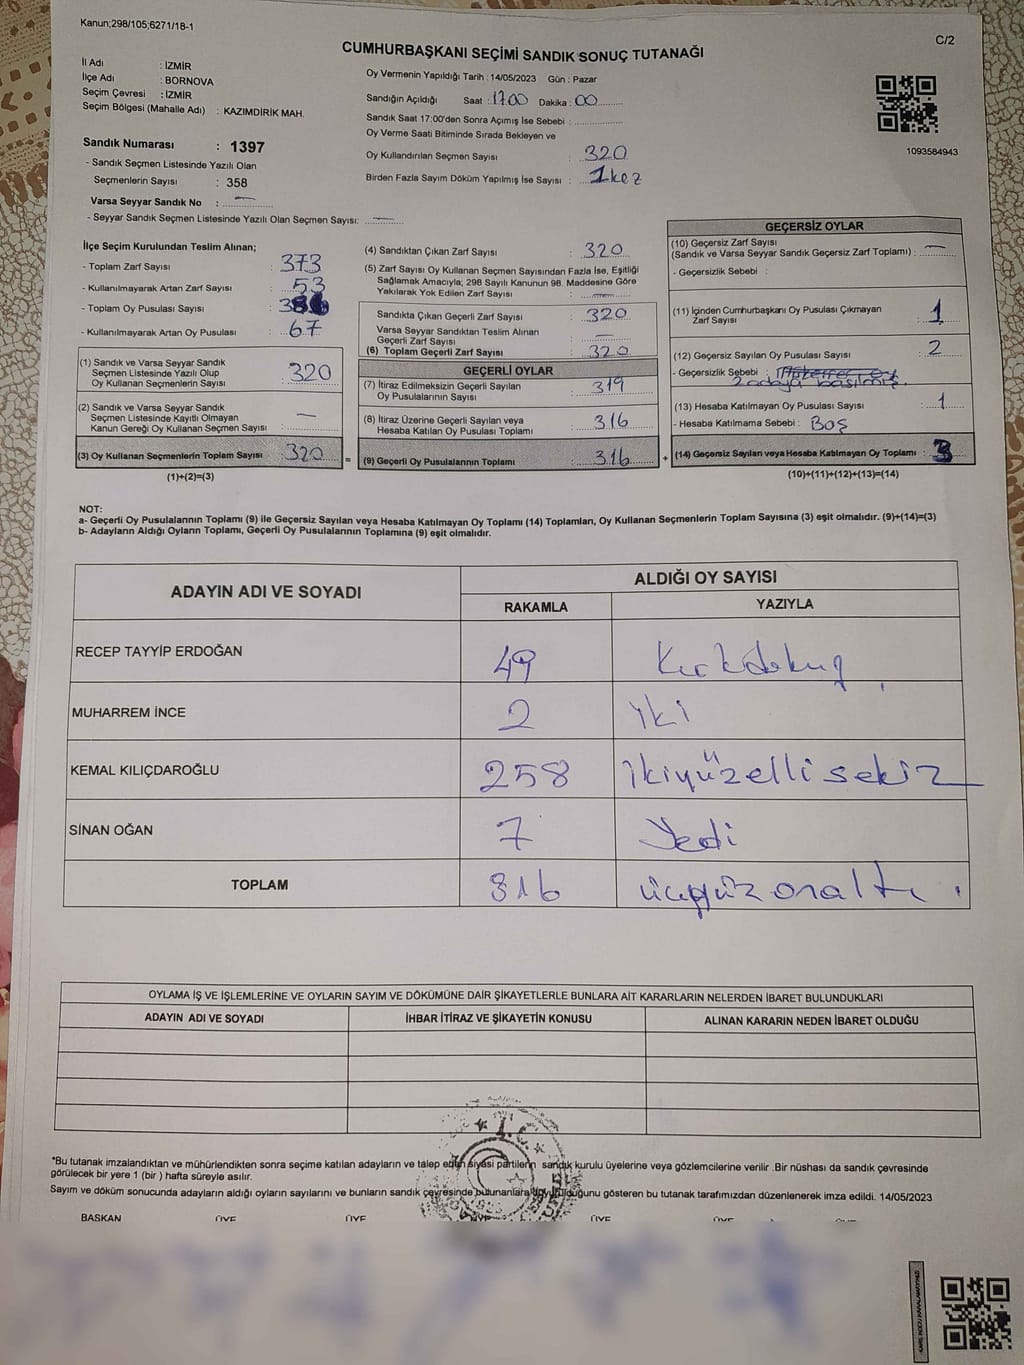 Kanun;298/105;6271/18-1
C/2
CUMHURBAŞKANI SEÇİMİ SANDIK SONUÇ TUTANAĞI
İl Adı : İZMİR
İlçe Adı : BORNOVA
Seçim Çevresi : İZMİR
Seçim Bölgesi (Mahalle Adı) : KAZIMDİRİK MAH.
Sandık Numarası : 1397
- Sandık Seçmen Listesinde Yazılı Olan
Seçmenlerin Sayısı : 358
Varsa Seyyar Sandık No : —
- Seyyar Sandık Seçmen Listesinde Yazılı Olan Seçmen Sayısı: —
Oy Vermenin Yapıldığı Tarih : 14/05/2023 Gün : Pazar
Sandığın Açıldığı Saat : 17.00 Dakika : 00
Sandık Saat 17:00'den Sonra Açımış İse Sebebi :
Oy Verme Saati Bitiminde Sırada Bekleyen ve
Oy Kullandırılan Seçmen Sayısı : 320
Birden Fazla Sayım Döküm Yapılmış İse Sayısı : 1 kez
1093584943
İlçe Seçim Kurulundan Teslim Alınan;
- Toplam Zarf Sayısı : 373
- Kullanılmayarak Artan Zarf Sayısı : 53
- Toplam Oy Pusulası Sayısı :
- Kullanılmayarak Artan Oy Pusulası : 67
(1) Sandık ve Varsa Seyyar Sandık
Seçmen Listesinde Yazılı Olup
Oy Kullanan Seçmenlerin Sayısı : 320
(2) Sandık ve Varsa Seyyar Sandık
Seçmen Listesinde Kayıtlı Olmayan
Kanun Gereği Oy Kullanan Seçmen Sayısı : —
(3) Oy Kullanan Seçmenlerin Toplam Sayısı : 320
(1)+(2)=(3)
(4) Sandıktan Çıkan Zarf Sayısı : 320
(5) Zarf Sayısı Oy Kullanan Seçmen Sayısından Fazla İse, Eşitliği
Sağlamak Amacıyla; 298 Sayılı Kanunun 98. Maddesine Göre
Yakılarak Yok Edilen Zarf Sayısı : —
Sandıkta Çıkan Geçerli Zarf Sayısı : 320
Varsa Seyyar Sandıktan Teslim Alınan
Geçerli Zarf Sayısı : —
(6) Toplam Geçerli Zarf Sayısı : 320
GEÇERLİ OYLAR
(7) İtiraz Edilmeksizin Geçerli Sayılan
Oy Pusulalarının Sayısı : 319
(8) İtiraz Üzerine Geçerli Sayılan veya
Hesaba Katılan Oy Pusulası Toplamı : 316
= (9) Geçerli Oy Pusulalarının Toplamı : 316 +
GEÇERSİZ OYLAR
(10) Geçersiz Zarf Sayısı
(Sandık ve Varsa Seyyar Sandık Geçersiz Zarf Toplamı) : —
- Geçersizlik Sebebi :
(11) İçinden Cumhurbaşkanı Oy Pusulası Çıkmayan
Zarf Sayısı : 1
(12) Geçersiz Sayılan Oy Pusulası Sayısı : 2
- Geçersizlik Sebebi :
2 adaya basılmış.
(13) Hesaba Katılmayan Oy Pusulası Sayısı : 1
- Hesaba Katılmama Sebebi : Boş
(14) Geçersiz Sayılan veya Hesaba Katılmayan Oy Toplamı : 3
(10)+(11)+(12)+(13)=(14)
NOT:
a- Geçerli Oy Pusulalarının Toplamı (9) ile Geçersiz Sayılan veya Hesaba Katılmayan Oy Toplamı (14) Toplamları, Oy Kullanan Seçmenlerin Toplam Sayısına (3) eşit olmalıdır. (9)+(14)=(3)
b- Adayların Aldığı Oyların Toplamı, Geçerli Oy Pusulalarının Toplamına (9) eşit olmalıdır.
ADAYIN ADI VE SOYADI
ALDIĞI OY SAYISI
RAKAMLA YAZIYLA
RECEP TAYYİP ERDOĞAN 49 Kırkdokuz
MUHARREM İNCE 2 iki
KEMAL KILIÇDAROĞLU 258 ikiyüzellisekiz
SİNAN OĞAN 7 Yedi
TOPLAM 316 üçyüzonaltı.
OYLAMA İŞ VE İŞLEMLERİNE VE OYLARIN SAYIM VE DÖKÜMÜNE DAİR ŞİKAYETLERLE BUNLARA AİT KARARLARIN NELERDEN İBARET BULUNDUKLARI
ADAYIN ADI VE SOYADI İHBAR İTİRAZ VE ŞİKAYETİN KONUSU ALINAN KARARIN NEDEN İBARET OLDUĞU
T.C.
*Bu tutanak imzalandıktan ve mühürlendikten sonra seçime katılan adayların ve talep eden siyasi partilerin sandık kurulu üyelerine veya gözlemcilerine verilir .Bir nüshası da sandık çevresinde
görülecek bir yere 1 (bir ) hafta süreyle asılır.
Sayım ve döküm sonucunda adayların aldığı oyların sayılarını ve bunların sandık çevresinde bulunanlara duyurulduğunu gösteren bu tutanak tarafımızdan düzenlenerek imza edildi. 14/05/2023
BAŞKAN ÜYE ÜYE ÜYE ÜYE ÜYE ÜYE